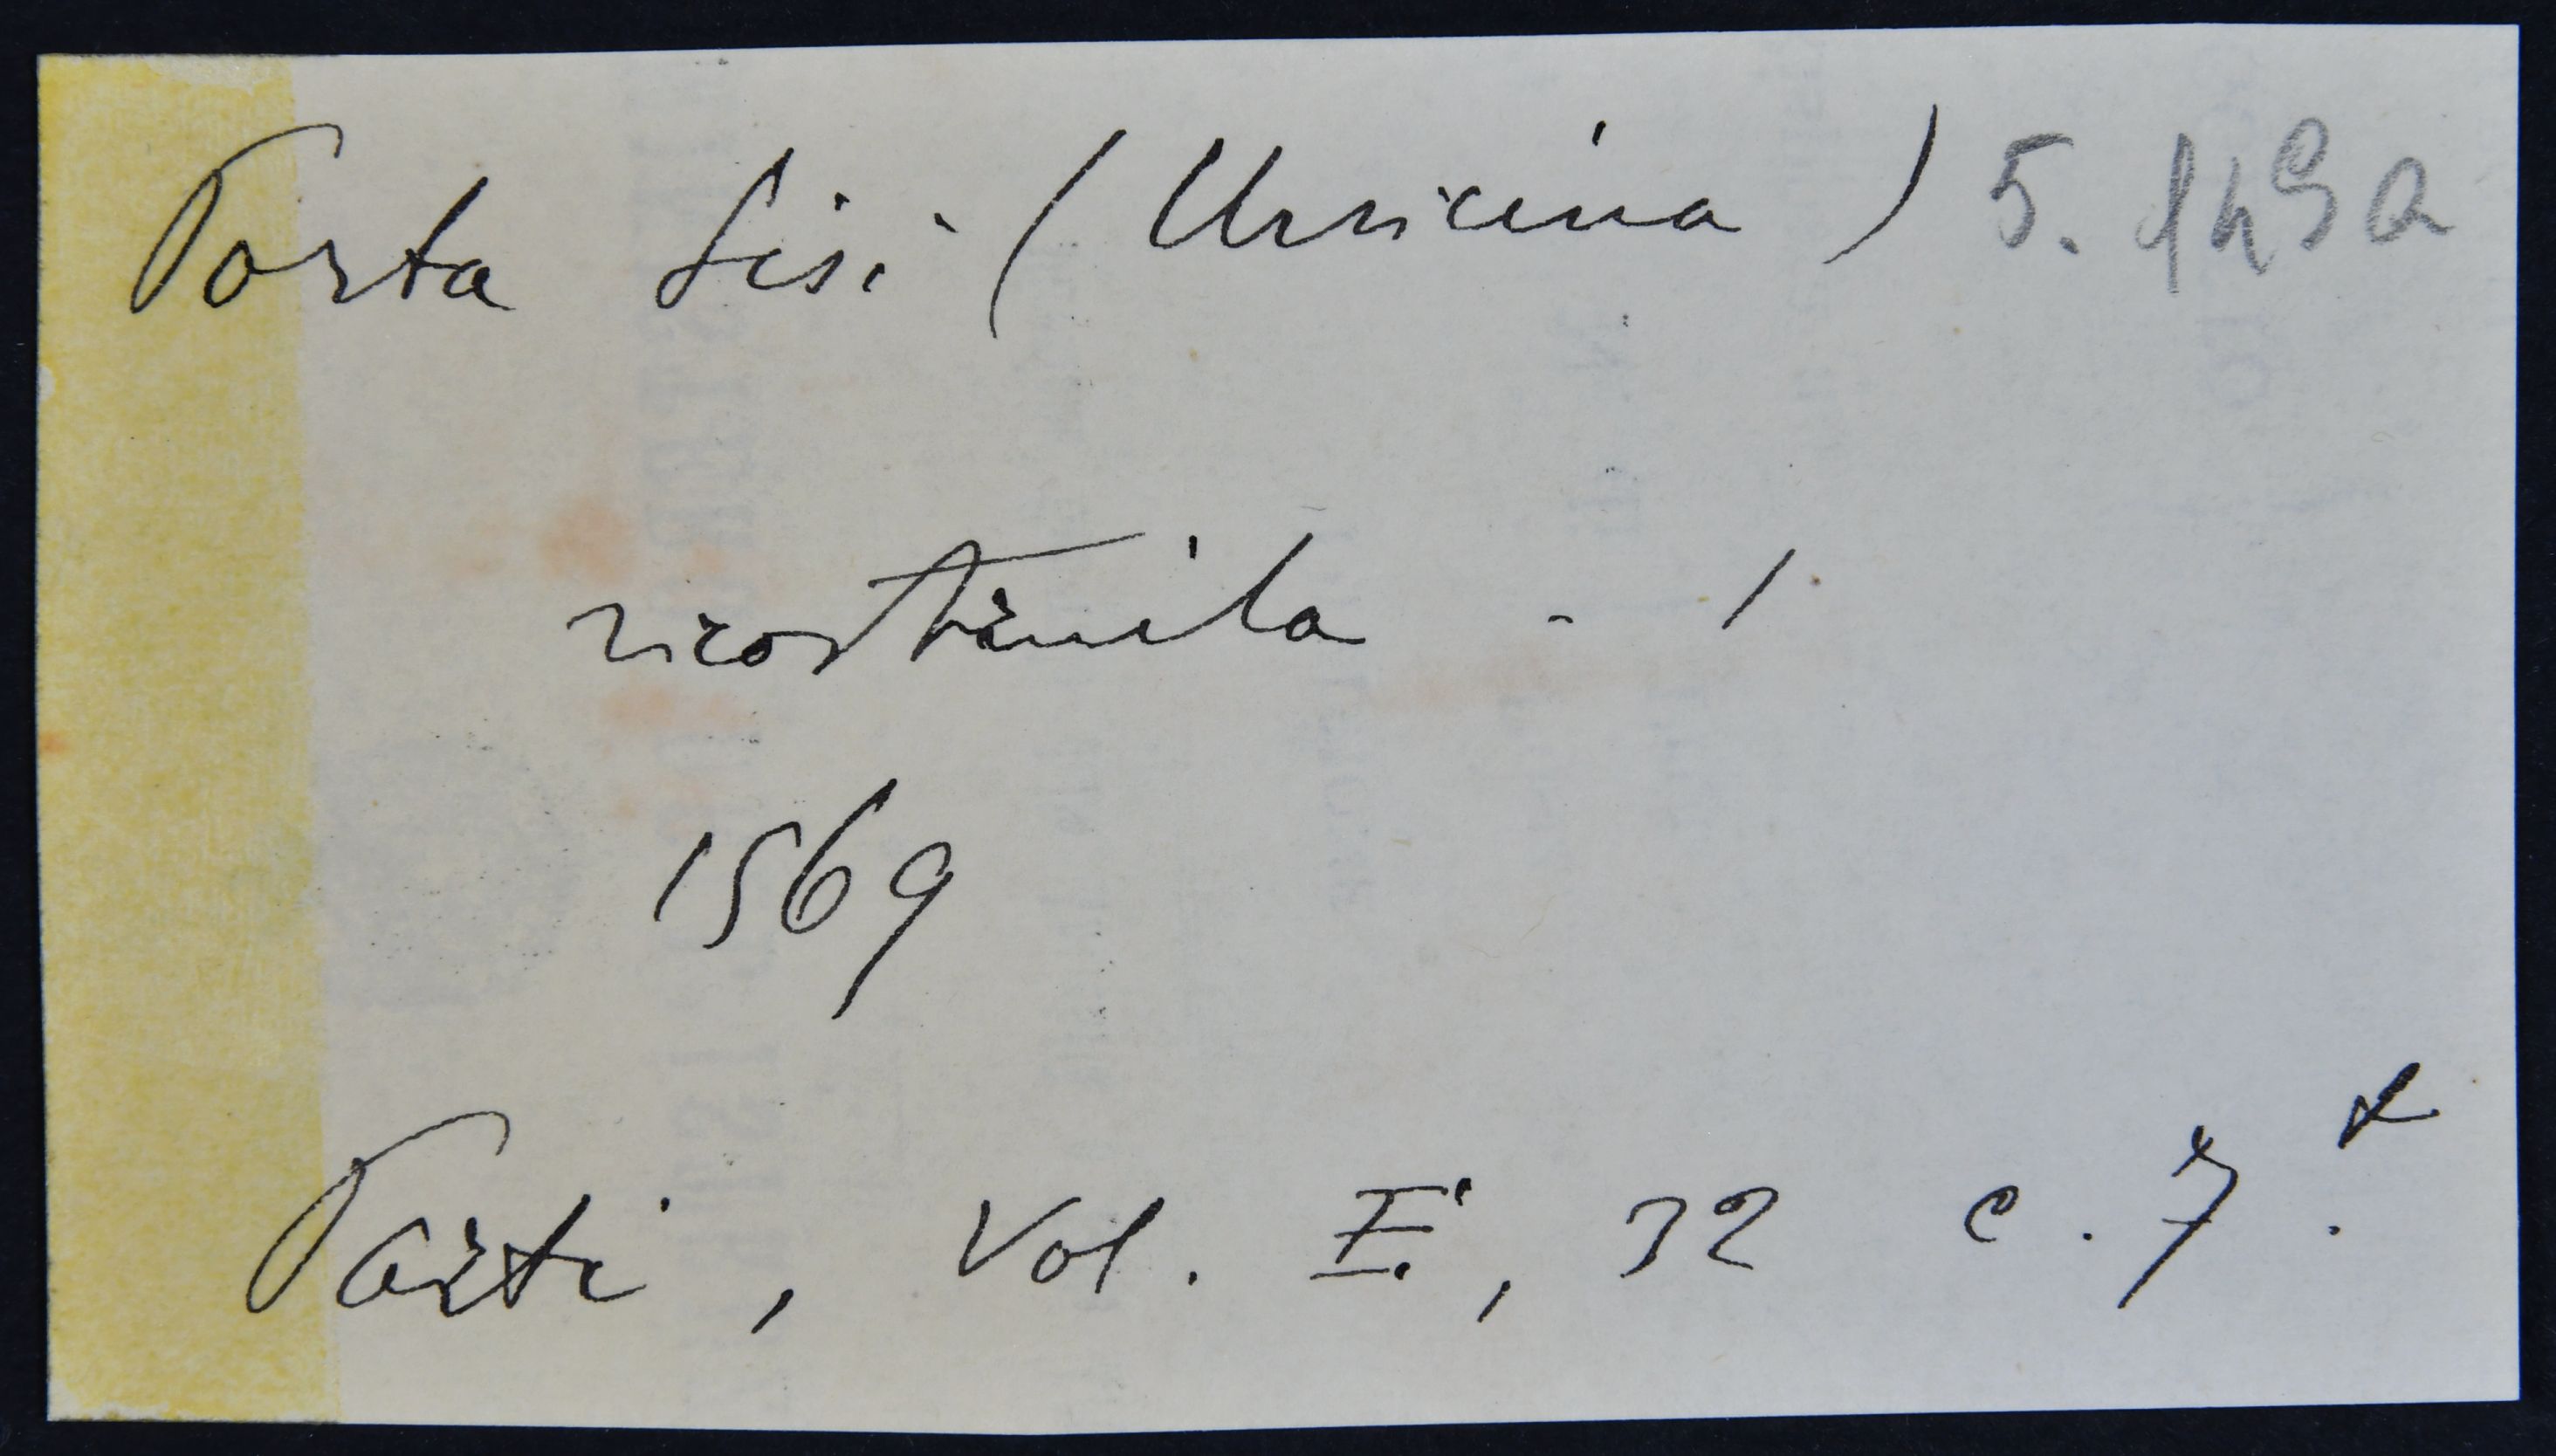 Porta Sisi (Ursicina) 5. 149a
ricostruita - 1
1569
Parti, Vol. I, 32 c. 7